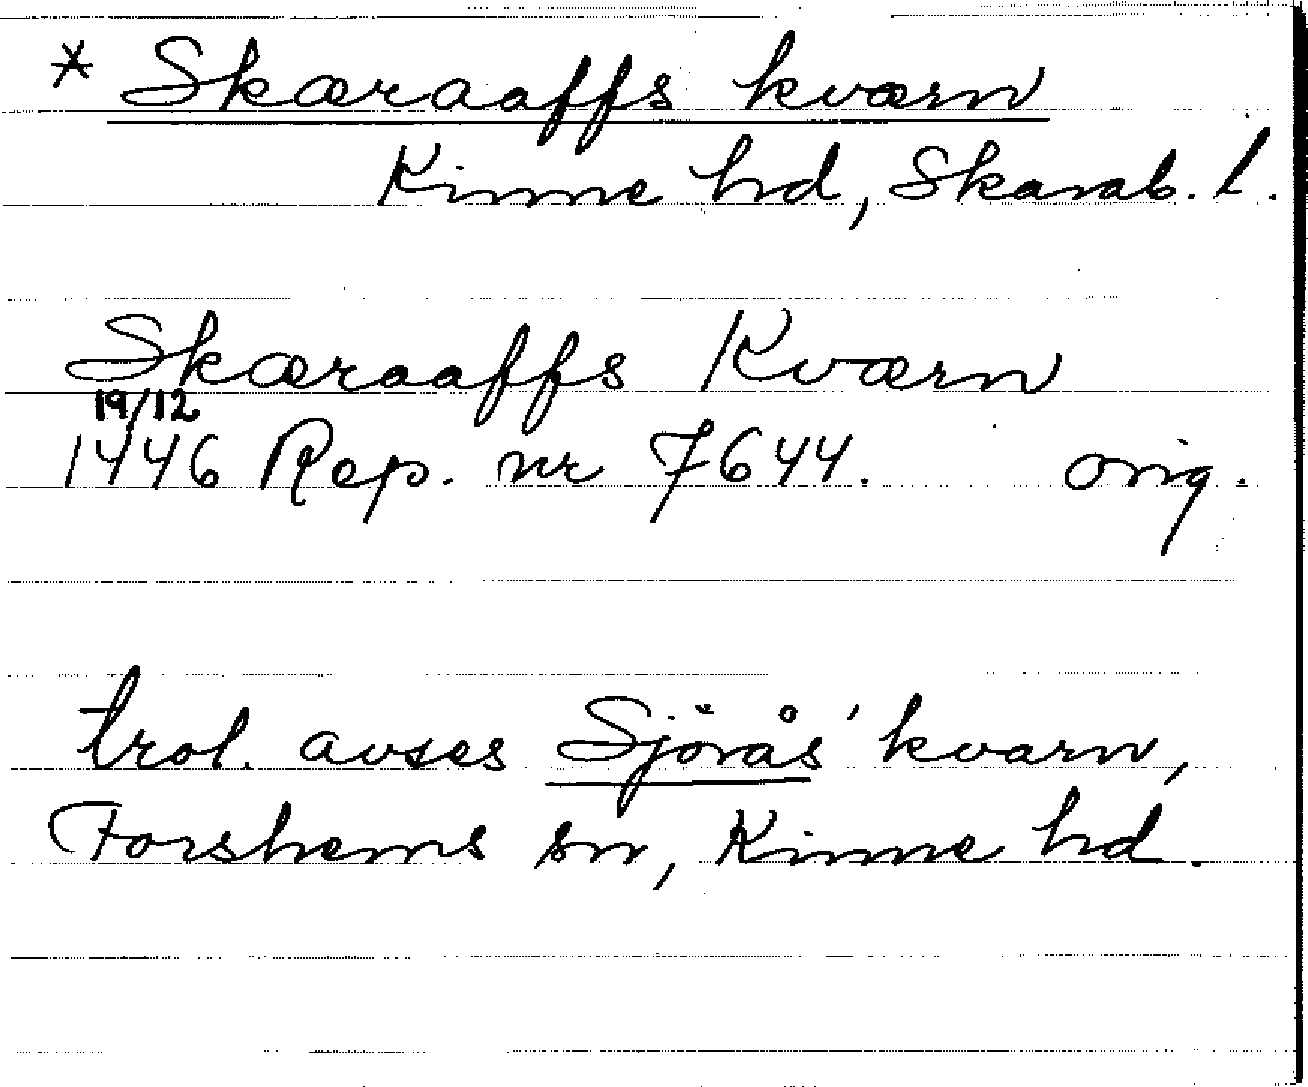 * Skæraaffs kværn
Kinne hd, Skarab. l.
Skæraaffs Kværn
19/12
1446 Rep. nr 7644. orig.
trol. avses Sjörås' kvarn,
Forshems sn, Kinne hd.